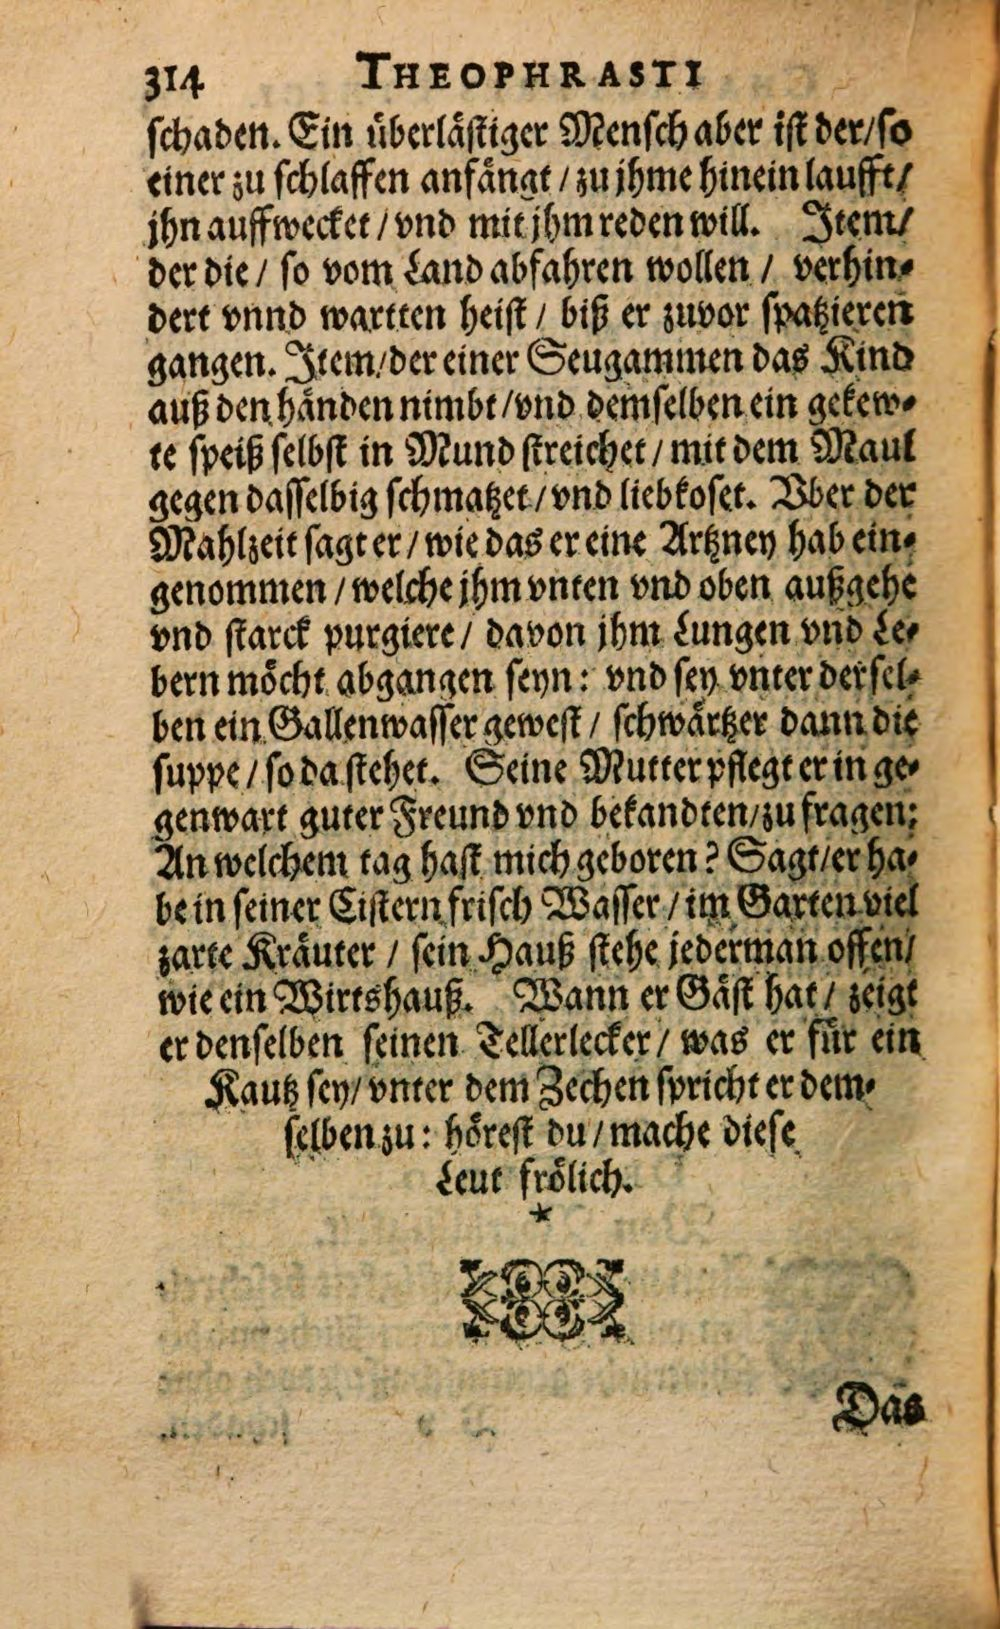 314 THEOPHRASTI
schaden. Ein überlästiger Mensch aber ist der/so
einer zu schlaffen anfängt / zu jhme hinein laufft/
jhn auffwecket / vnd mit jhm reden will. Item/
der die / so vom Land abfahren wollen / verhin-
dert vnnd wartten heist / biß er zuvor spatzieren
gangen. Item/der einer Seugammen das Kind
auß den händen nimbt/vnd demselben ein gekew-
te speiß selbst in Mund streichet / mit dem Maul
gegen dasselbig schmatzet/vnd liebkoset. Vber der
Mahlzeit sagt er / wie das er eine Artzney hab ein-
genommen / welche jhm vnten vnd oben außgehe
vnd starck purgiere / davon jhm Lungen vnd Le-
bern möcht abgangen seyn: vnd sey vnter dersel-
ben ein Gallenwasser gewest / schwärtzer dann die
suppe / so da stehet. Seine Mutter pflegt er in ge-
genwart guter Freund vnd bekandten/zu fragen:
An welchem tag hast mich geboren? Sagt/er ha-
be in seiner Cistern frisch Wasser / im Garten viel
zarte Kräuter / sein Hauß stehe jederman offen/
wie ein Wirtshauß. Wann er Gäst hat / zeigt
er denselben seinen Tellerlecker / was er für ein
Kautz sey/vnter dem Zechen spricht er dem-
selben zu: hörest du / mache diese
Leut frölich.
*
Das